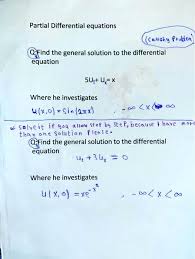 Partial Differential equations
(Cauchy Problem)
Q: Find the general solution to the differential
equation
5Ut + Ux = x
Where he investigates
u(x,0) = Sin(2πx) , -∞ < x < ∞
Solve it if you allow step by step, because I have more
than one solution please.
Q: Find the general solution to the differential
equation
ut + 3ux = 0
Where he investigates
u(x,0) = xe^-x² -∞ < x < ∞